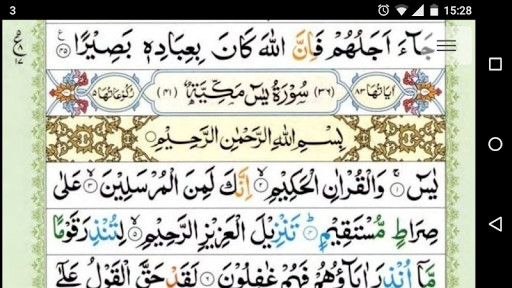 3 15:28
جَآءَ اَجَلُهُمْ فَاِنَّ اللّٰهَ كَانَ بِعِبَادِهٖ بَصِيْرًا ۝۴۵
اٰيَاتُهَا ۸۳ (۳۶) سُوْرَةُ يٰسٓ مَكِّيَّةٌ (۴۱) رُكُوْعَاتُهَا ۵
بِسْمِ اللّٰهِ الرَّحْمٰنِ الرَّحِيْمِ
يٰسٓ ۝۱ وَالْقُرْاٰنِ الْحَكِيْمِ ۝۲ اِنَّكَ لَمِنَ الْمُرْسَلِيْنَ ۝۳ عَلٰى
صِرَاطٍ مُّسْتَقِيْمٍ ۝۴ تَنْزِيْلَ الْعَزِيْزِ الرَّحِيْمِ ۝۵ لِتُنْذِرَ قَوْمًا
مَّآ اُنْذِرَ اٰبَآؤُهُمْ فَهُمْ غٰفِلُوْنَ ۝۶ لَقَدْ حَقَّ الْقَوْلُ عَلٰٓى